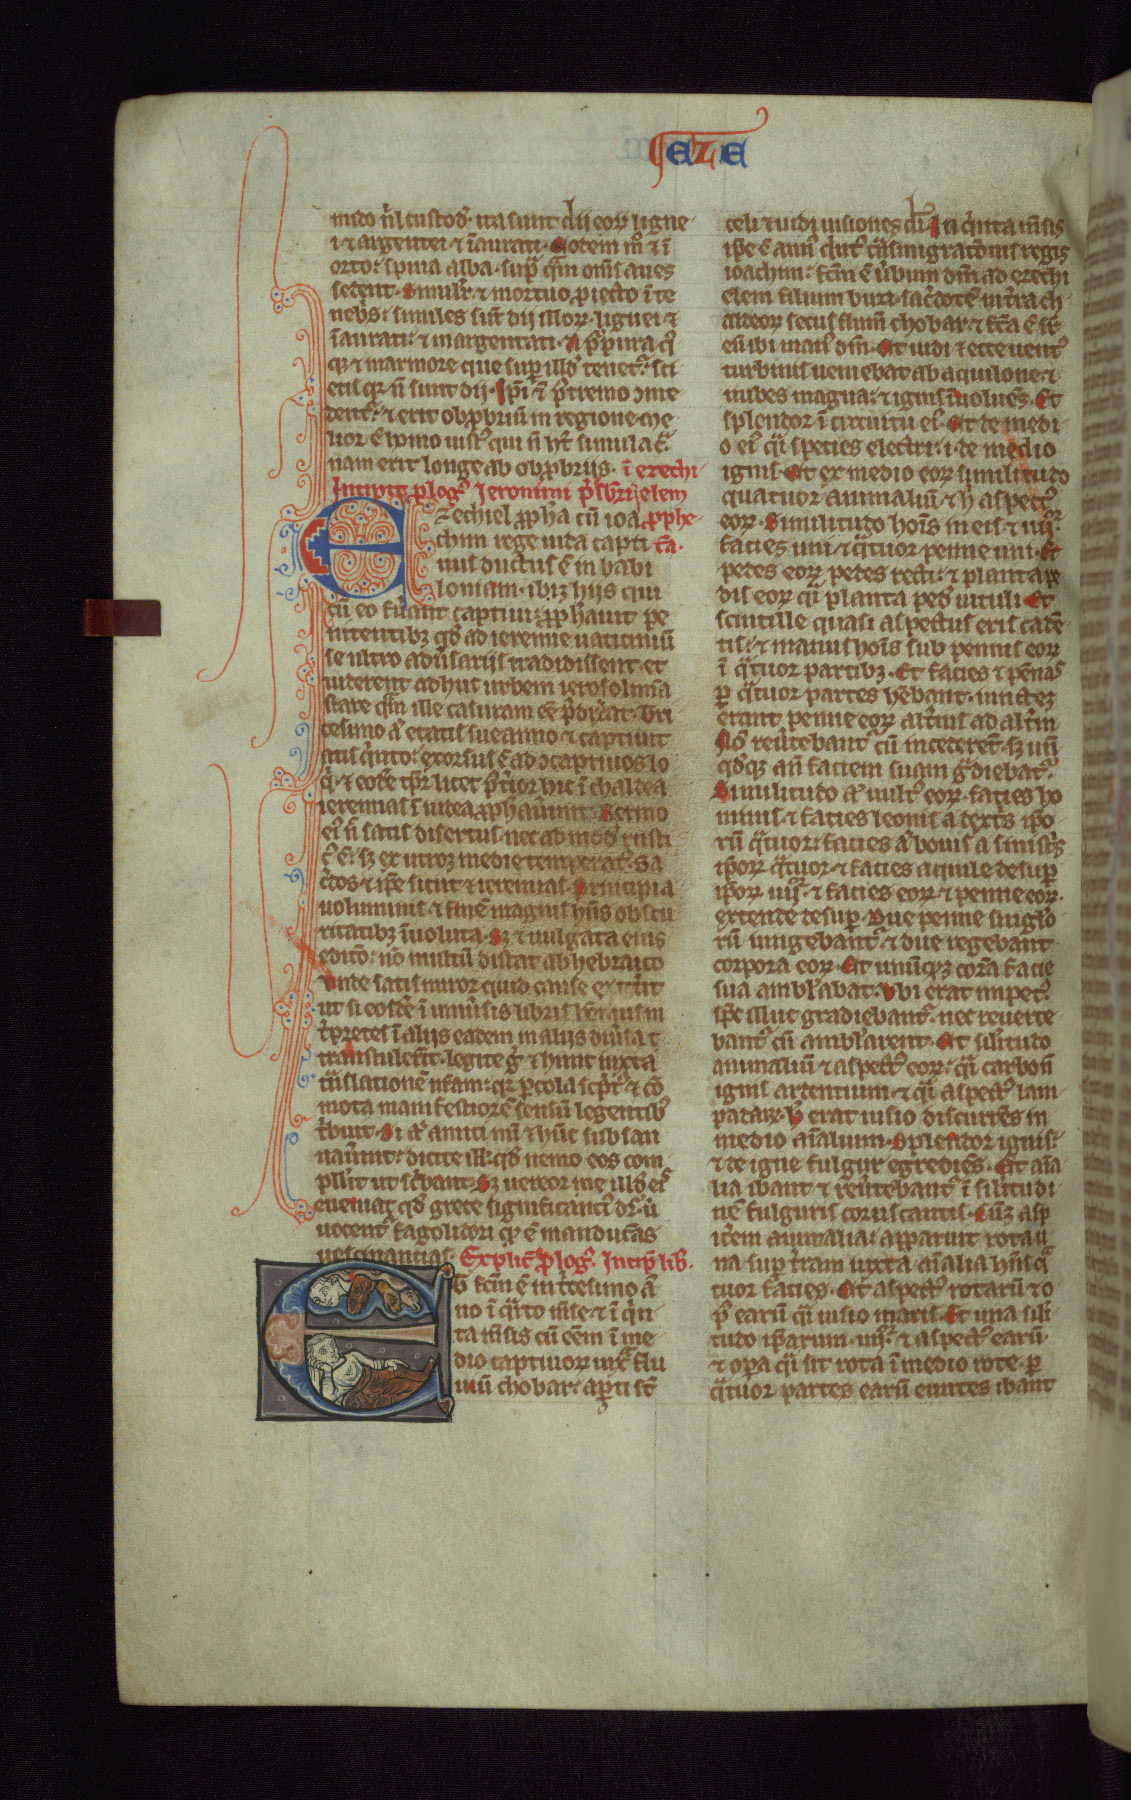 EZE
mido nichil custodit ita sunt dii eorum ligne
i et argentei et inaurati. Eotem modo et in
orto: spina alba. supra quam omnis aues
sedent. Similiter et mortuo proiecto in te
nebris: similes sunt dii illorum. lignei et
inaurati: et inargentati. A purpura quo
que et marmore que supra illos tenetur: sci
etis quia non sunt dii. Ipsi etiam postremo come
dentur: et erit obprobrium in regione. Me
lior est homo iustus qui non habet simulacra.
nam erit longe ab obprobriis. in ezechi
Incipit prologus Ieronimi presbiteri elem
Ezechiel propheta cum ioa prophe
chim rege iuda capti tam.
uus ductus est in babi
loniam. ibique hiis qui
cum eo fuerant captiui: prophetauit pe
nitentibus quod ad ieremie uaticinium
se ultro aduersariis tradidissent. et
uiderent adhuc urbem ierosolimam
stare quam ille casuram esse predixerat. Tri
cesimo autem etatis sue anno et captiuit
atis quinto: exorsus est ad concaptiuos lo
qui. et eodem tempore licet posterior hic in chaldea
ieremias in iudea prophetauerunt. Sermo
eius nec satis disertus. nec admodum rusti
cus est: sed ex utroque medie temperatus. Sa
cerdos et ipse sicut et ieremias. Principia
uoluminis et finem magnis habens obscu
ritatibus inuoluta. Sed et uulgata eius
editio: non multum distat ab hebraico
Unde satis miror quid cause extiterit
ut si eosdem in uniuersis libris habemus in
terpretes in aliis eadem in aliis diuersa
transtulerint. Legite igitur et hunc iuxta
translationem nostram: quia per cola scriptus et com
mota manifestiorem sensum legentibus
tribuit. Si autem amici mei et hunc subsan
nauerint: dicite illis quod nemo eos com
pellit ut scribant. Sed uereor ne illud eis
eueniat quod grece significantius dicitur: ut
uocentur fagolidori quod est manducans
uescinantias. Explicit prologus. Incipit liber.
Et factum est in tricesimo an
no in quarto mense. et in quin
ta mensis cum essem in me
dio captiuorum iuxta flu
uium chobar: aperti sunt
celi et uidi uisiones dei. In quinta mensis
ipse est annus quintus transmigrationis regis
ioachim: factum est uerbum domini ad ezechi
elem filium buzi. sacerdotem in terra ch
aldeorum secus flumen chobar. et facta est super
eum ibi manus domini. Et uidi et ecce uentus
turbinis ueniebat ab aquilone. et
nubes magna: et ignis inuoluens. Et
splendor in circuitu eius. Et de medi
o eius quasi species electri: id est de medio
ignis. Et ex medio eorum similitudo
quatuor animalium. et hic aspectus
eorum. Similitudo hominis in eis. et iiiior
facies uni. et quatuor penne uni. Et
pedes eorum pedes recti: et planta pe
dis eorum quasi planta pedis uituli. Et
scintille quasi aspectus eris canden
tis: et manus hominis sub pennis eorum
in quatuor partibus. Et facies et pennas
per quatuor partes habebant. iuncteque
erant penne eorum alterius ad alterum
Non reuertebantur cum incederent. sed unum
quodque ante faciem suam gradiebatur.
Similitudo autem uultus eorum. facies ho
minis. et facies leonis a dextris ipso
rum quatuor: facies autem bouis a sinistris
ipsorum quatuor. et facies aquile desuper
ipsorum iiiior. et facies eorum et penne eorum.
extente desuper. Due penne singulo
rum iungebantur. et due tegebant
corpora eorum. Et unumquodque coram facie
sua ambulabat. Ubi erat impetus
spiritus illuc gradiebantur. nec reuerte
bantur cum ambularent. Et similitudo
animalium et aspectus eorum: quasi carbonum
ignis ardentium. et quasi aspectus lam
padarum. Hec erat uisio discurrens in
medio animalium. Splendor ignis:
et de igne fulgur egrediens. Et anima
lia ibant et reuertebantur in similitudi
nem fulguris coruscantis. Cumque asp
icerem animalia: apparuit rota u
na super terram iuxta animalia habens qua
tuor facies. Et aspectus rotarum et o
pus earum quasi uisio maris. Et una simili
tudo ipsarum. iiiior. et aspectus earum.
et opera quasi sit rota in medio rote. per
quatuor partes earum euntes ibant